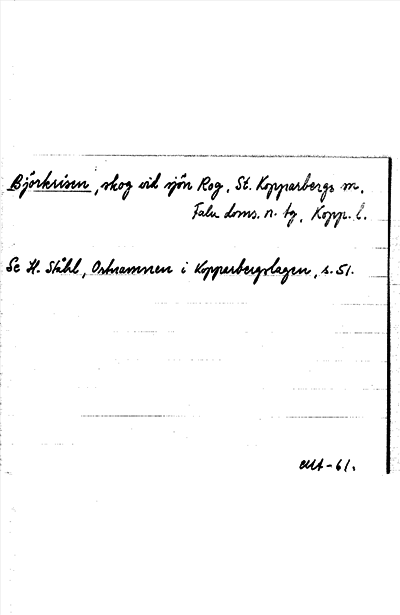 Björkrisen, skog vid sjön Rog, St. Kopparbergs sn,
Falu doms. n. tg, Kopp. l.
Se H. Ståhl, Ortnamnen i Kopparbergslagen, s. 51.
-61.